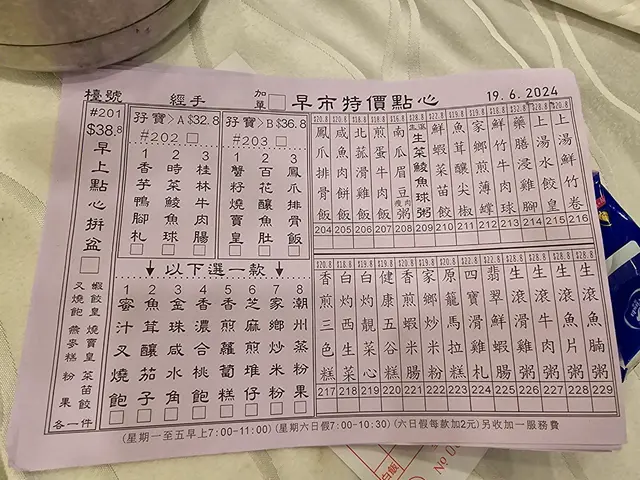 檯號 經手 加單 早市特價點心 19.6.2024
#201
$38.8
早上點心拼盆
叉燒飽 燕麥糕 粉果
蝦餃皇 燒賣皇 菜苗餃
各一件
孖寶>A $32.8
#202
1 香芋鴨腳札
2 時菜鯪魚球
3 桂林牛肉腸
孖寶>B $36.8
#203
1 蟹籽燒賣皇
2 百花釀魚肚
3 鳳爪排骨飯
↓以下選一款↓
1 蜜汁叉燒飽
2 魚茸釀茄子
3 金珠咸水角
4 香濃合桃飽
5 香煎蘿蔔糕
6 芝麻堆仔
7 家鄉炒米粉
8 潮州蒸粉果
鳳爪排骨飯 204
咸魚肉餅飯 205
北菰滑雞飯 206
煎蛋牛肉飯 207
南瓜眉豆瘦肉粥 208
生菜鯪魚球粥 209
鮮蝦菜苗餃 210
魚茸釀尖椒 211
家鄉煎薄罉 212
鮮竹牛肉球 213
藥膳浸雞腳 214
上湯水餃皇 215
上湯鮮竹卷 216
香煎三色糕 217
白灼西生菜 218
白灼靚菜心 219
健康五榖糕 220
香煎蝦米腸 221
家鄉炒米粉 222
原籠馬拉糕 223
四寶滑雞札 224
翡翠鮮蝦腸 225
生滾雞粥 226
生滾牛肉粥 227
生滾魚片粥 228
生滾魚腩粥 229
(星期一至五早上7:00-11:00) (星期六日假7:00-10:30) (六日假每款加2元) 另收加一服務費